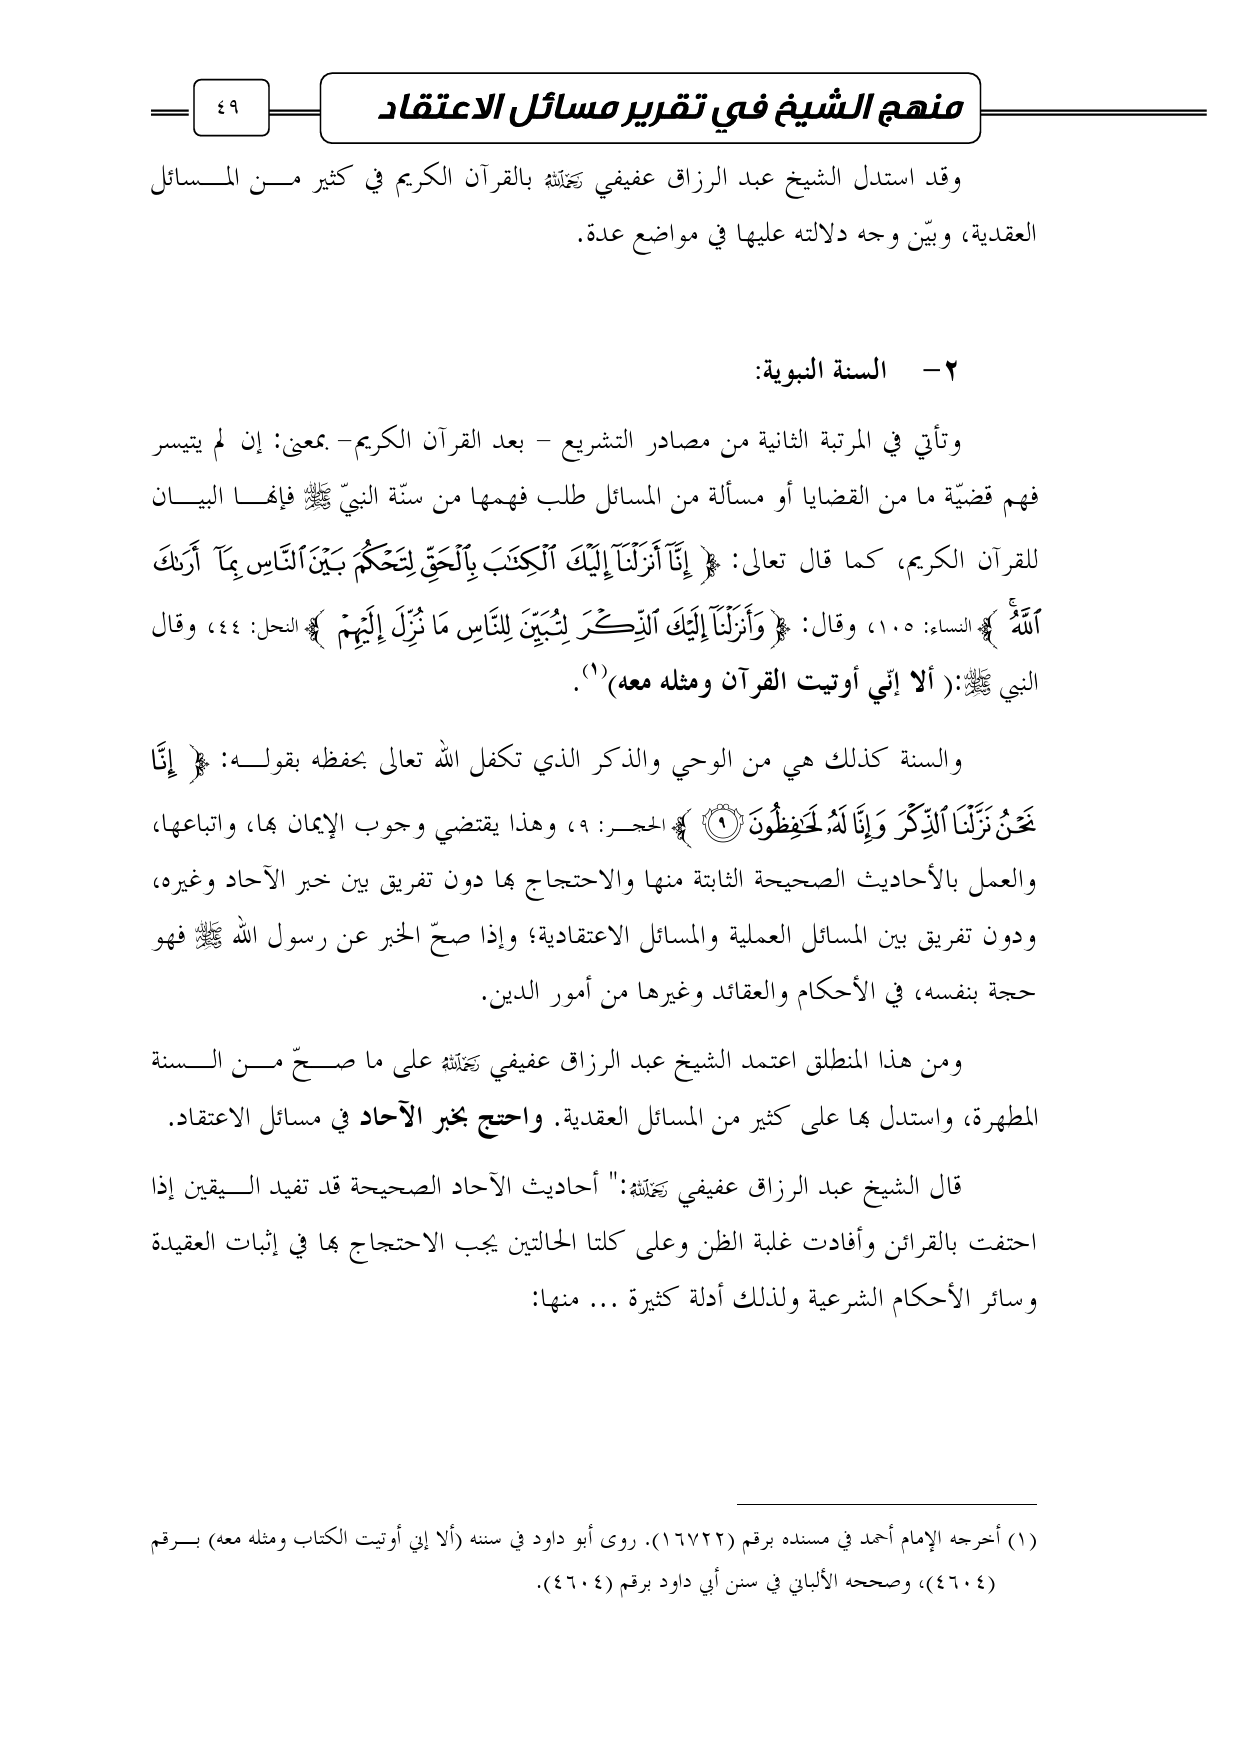 منهج الشيخ في تقرير مسائل الاعتقاد
٤٩
وقد استدل الشيخ عبد الرزاق عفيفي رحمه الله بالقرآن الكريم في كثير مـــن المـــسائل
العقدية، وبيّن وجه دلالته عليها في مواضع عدة.
٢- السنة النبوية:
وتأتي في المرتبة الثانية من مصادر التشريع – بعد القرآن الكريم– بمعنى: إن لم يتيسر
فهم قضيّة ما من القضايا أو مسألة من المسائل طلب فهمها من سنّة النبيّ ﷺ فإنهـــا البيـــان
للقرآن الكريم، كما قال تعالى: ﴿ إِنَّآ أَنزَلْنَآ إِلَيْكَ ٱلْكِتَٰبَ بِٱلْحَقِّ لِتَحْكُمَ بَيْنَ ٱلنَّاسِ بِمَآ أَرَىٰكَ
ٱللَّهُ ۚ ﴾ النساء: ١٠٥، وقال: ﴿ وَأَنزَلْنَآ إِلَيْكَ ٱلذِّكْرَ لِتُبَيِّنَ لِلنَّاسِ مَا نُزِّلَ إِلَيْهِمْ ﴾ النحل: ٤٤، وقال
النبي ﷺ:( ألا إنّي أوتيت القرآن ومثله معه)(١).
والسنة كذلك هي من الوحي والذكر الذي تكفل الله تعالى بحفظه بقولـــه: ﴿ إِنَّا
نَحْنُ نَزَّلْنَا ٱلذِّكْرَ وَإِنَّا لَهُۥ لَحَٰفِظُونَ ٩ ﴾ الحجـــر: ٩، وهذا يقتضي وجوب الإيمان بها، واتباعها،
والعمل بالأحاديث الصحيحة الثابتة منها والاحتجاج بها دون تفريق بين خبر الآحاد وغيره،
ودون تفريق بين المسائل العملية والمسائل الاعتقادية؛ وإذا صحّ الخبر عن رسول الله ﷺ فهو
حجة بنفسه، في الأحكام والعقائد وغيرها من أمور الدين.
ومن هذا المنطلق اعتمد الشيخ عبد الرزاق عفيفي رحمه الله على ما صـــحّ مـــن الـــسنة
المطهرة، واستدل بها على كثير من المسائل العقدية. واحتج بخبر الآحاد في مسائل الاعتقاد.
قال الشيخ عبد الرزاق عفيفي رحمه الله:" أحاديث الآحاد الصحيحة قد تفيد الـــيقين إذا
احتفت بالقرائن وأفادت غلبة الظن وعلى كلتا الحالتين يجب الاحتجاج بها في إثبات العقيدة
وسائر الأحكام الشرعية ولذلك أدلة كثيرة ... منها:
(١) أخرجه الإمام أحمد في مسنده برقم (١٦٧٢٢). روى أبو داود في سننه (ألا إني أوتيت الكتاب ومثله معه) بـــرقم
(٤٦٠٤)، وصححه الألباني في سنن أبي داود برقم (٤٦٠٤).